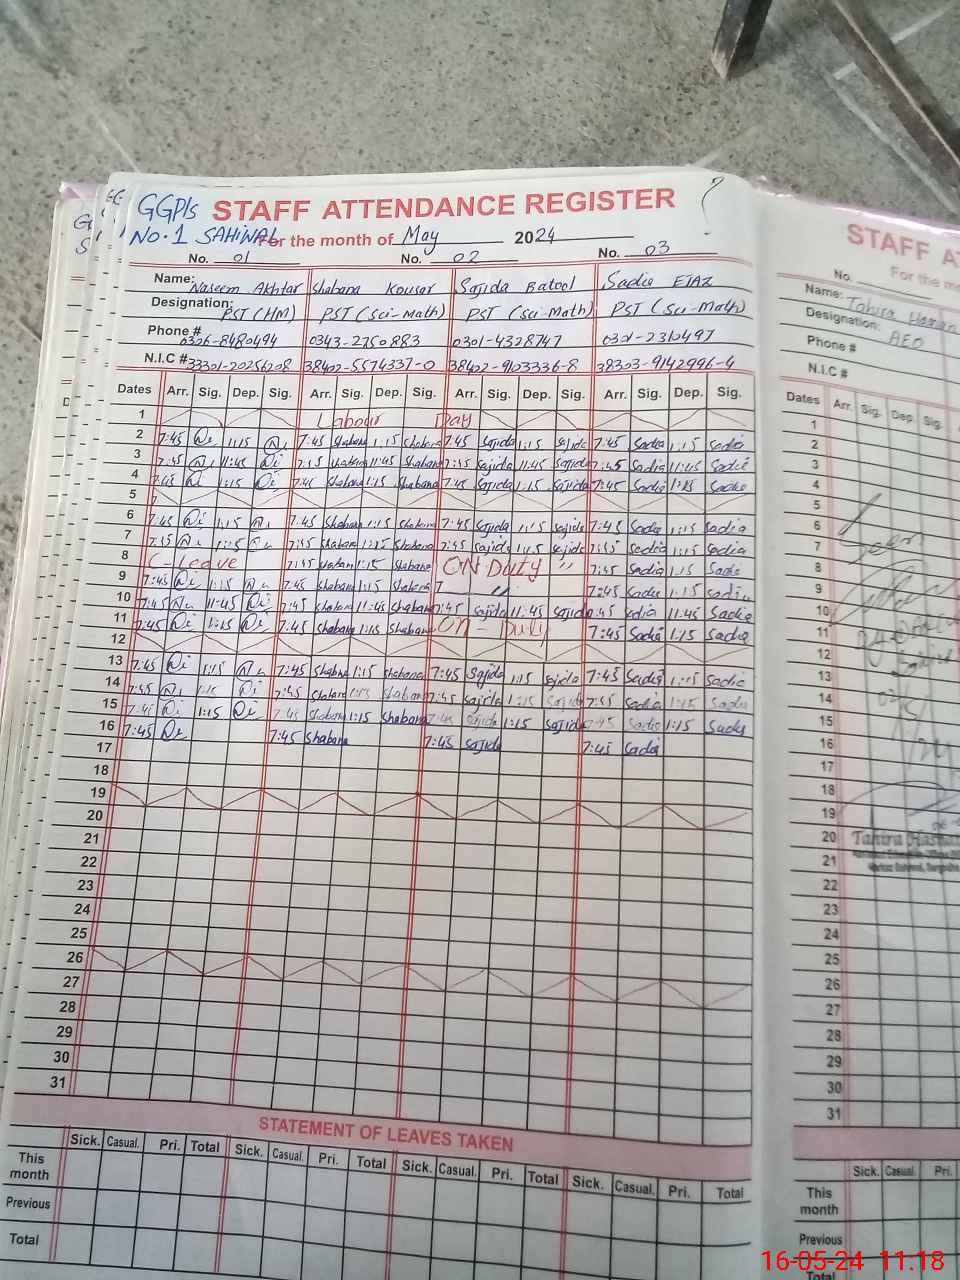 GGPIs STAFF ATTENDANCE REGISTER
No.1 SAHIWAL For the month of May 2024
No. 01 No. 02 No. 03
Name: Naseem Akhtar Shabana Kousar Sajida Batool Sadia EJAZ
Designation: PST (HM) PST (Sci-Math) PST (Sci-Math) PST (Sci-Math)
Phone # 0306-8480494 0343-2750883 0301-4328747 0301-2310497
N.I.C # 33301-20256208 38402-5574337-0 38402-9103336-8 38303-9142996-4
Dates Arr. Sig. Dep. Sig. Arr. Sig. Dep. Sig. Arr. Sig. Dep. Sig. Arr. Sig. Dep. Sig.
1 Labour Day
2 7:45 1:15 7:45 Shabana 1:15 Shabana 7:45 Sajida 1:15 Sajida 7:45 Sadia 1:15 Sadia
3 7:45 11:45 7:45 Shabana 11:45 Shabana 7:45 Sajida 11:45 Sajida 7:45 Sadia 11:45 Sadia
4 7:45 1:15 7:45 Shabana 1:15 Shabana 7:45 Sajida 1:15 Sajida 7:45 Sadia 1:15 Sadia
5
6 7:45 1:15 7:45 Shabana 1:15 Shabana 7:45 Sajida 1:15 Sajida 7:45 Sadia 1:15 Sadia
7 7:45 1:15 7:45 Shabana 1:15 Shabana 7:45 Sajida 1:15 Sajida 7:45 Sadia 1:15 Sadia
8 C-Leave 7:45 Shabana 1:15 Shabana ON DUTY 7:45 Sadia 1:15 Sadia
9 7:45 1:15 7:45 Shabana 1:15 Shabana 7:45 Sadia 1:15 Sadia
10 7:45 11:45 7:45 Shabana 11:45 Shabana 7:45 Sajida 11:45 Sajida 7:45 Sadia 11:45 Sadia
11 7:45 1:15 7:45 Shabana 1:15 Shabana On - Duty 7:45 Sadia 1:15 Sadia
12
13 7:45 1:15 7:45 Shabana 1:15 Shabana 7:45 Sajida 1:15 Sajida 7:45 Sadia 1:15 Sadia
14 7:45 1:15 7:45 Shabana 1:15 Shabana 7:45 Sajida 1:15 Sajida 7:45 Sadia 1:15 Sadia
15 7:45 1:15 7:45 Shabana 1:15 Shabana 7:45 Sajida 1:15 Sajida 7:45 Sadia 1:15 Sadia
16 7:45 7:45 Shabana 7:45 Sajida 7:45 Sadia
17
18
19
20
21
22
23
24
25
26
27
28
29
30
31
STATEMENT OF LEAVES TAKEN
Sick. Casual. Pri. Total Sick. Casual. Pri. Total Sick. Casual. Pri. Total Sick. Casual. Pri. Total
This month
Previous
Total
STAFF
For the
No.
Name: Tahira
Designation: AEO
Phone #
N.I.C #
Dates Arr. Sig. Dep. Sig.
1
2
3
4
5
6
7
8
9
10
11
12
13
14
15
16
17
18
19
20 Tahira
21
22
23
24
25
26
27
28
29
30
31
Sick. Casual. Pri.
This month
Previous
Total
16-05-24 11:18